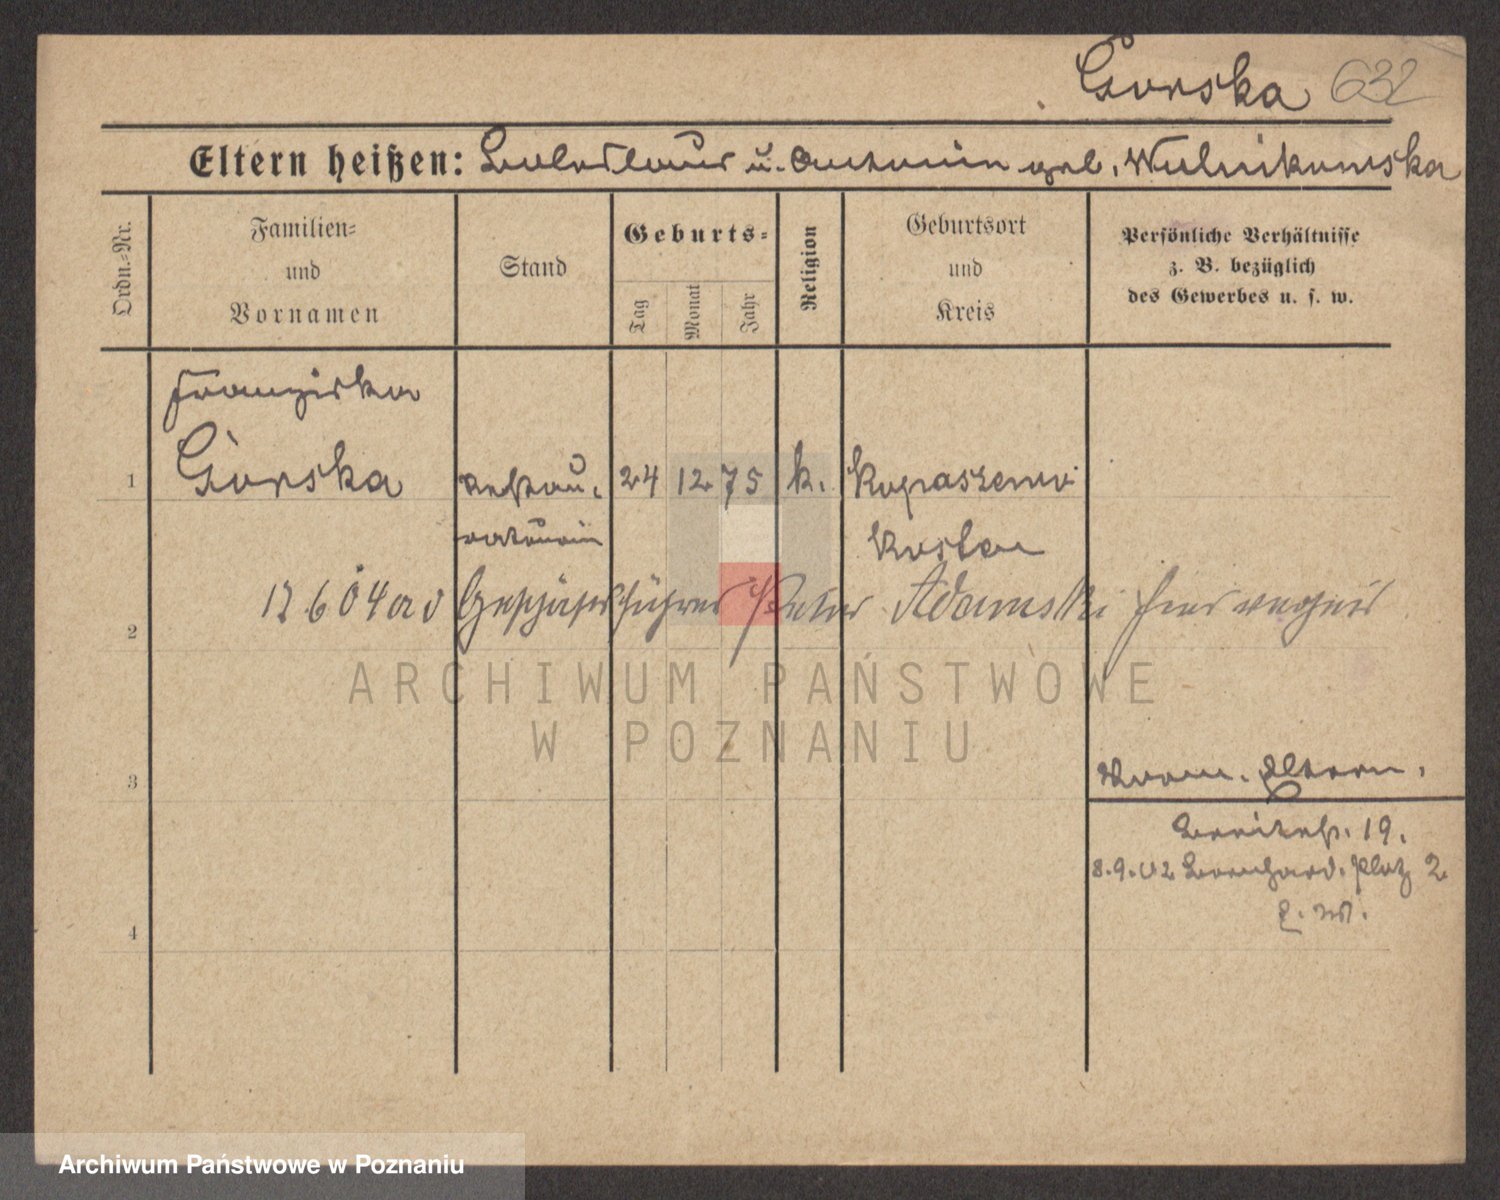 Górska 632
Eltern heißen: Boleslaus u. Antonin geb. Wulnikowska
Ordn.-Nr.
Familien-
und
Vornamen
Stand
Geburts-
Tag
Monat
Jahr
Religion
Geburtsort
und
Kreis
Persönliche Verhältnisse
z. B. bezüglich
des Gewerbes u. s. w.
Franziska
1 Górska Restau- 24 12 75 k. Kopaszewo
rateurin Kosten
12 6 04 Geschäftsführer Peter Adamski hier
2
ARCHIWUM PAŃSTWOWE
W POZNANIU
3
Eltern.
Breitestr. 19.
8.9.02 Bernhard. Platz 2
4
Archiwum Państwowe w Poznaniu